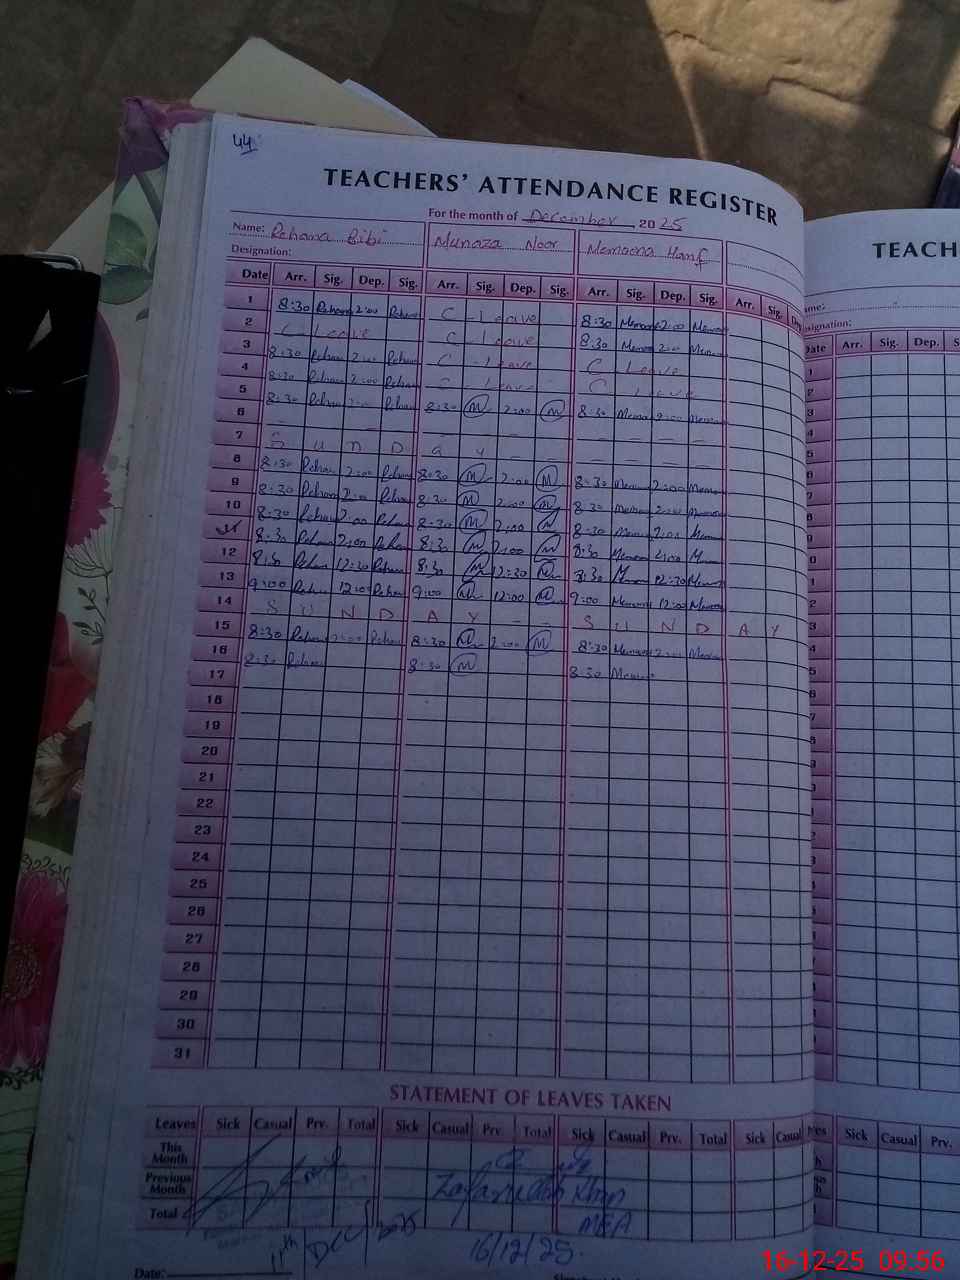 44
TEACHERS' ATTENDANCE REGISTER
For the month of December 2025
Name: Rehana Bibi Munaza Noor Memoona Hanif
Designation:
Date Arr. Sig. Dep. Sig. Arr. Sig. Dep. Sig. Arr. Sig. Dep. Sig. Arr. Sig.
1 8:30 Rehana 2:00 Rehana C - Leave 8:30 Memoona 2:00 Memoona
2 C - Leave C - Leave 8:30 Memoona 2:00 Memoona
3 8:30 Rehana 2:00 Rehana C - Leave C Leave
4 8:30 Rehana 2:00 Rehana C - Leave C Leave
5 8:30 Rehana 2:00 Rehana 8:30 M 2:00 M 8:30 Memoona 2:00 Memoona
6
7 S u n D a y
8 8:30 Rehana 2:00 Rehana 8:30 M 2:00 M 8:30 Memoona 2:00 Memoona
9 8:30 Rehana 2:00 Rehana 8:30 M 2:00 M 8:30 Memoona 2:00 Memoona
10 8:30 Rehana 2:00 Rehana 8:30 M 2:00 M 8:30 Memoona 2:00 Memoona
11 8:30 Rehana 2:00 Rehana 8:30 M 2:00 M 8:30 Memoona 2:00
12 8:30 Rehana 12:30 Rehana 8:30 M 12:30 M 8:30 12:30 Memoona
13 9:00 Rehana 12:00 Rehana 9:00 M 12:00 M 9:00 Memoona 12:00 Memoona
14 S U N D A Y S U N D A Y
15 8:30 Rehana 2:00 Rehana 8:30 M 2:00 M 8:30 Memoona 2:00 Memoona
16 8:30 Rehana 8:30 M 8:30 Memoona
17
18
19
20
21
22
23
24
25
26
27
28
29
30
31
STATEMENT OF LEAVES TAKEN
Leaves Sick Casual Prv. Total Sick Casual Prv. Total Sick Casual Prv. Total Sick Casual
This Month
Previous Month
Total
Zafarullah Khan
MEA
11th Dec 2025
16/12/25.
Date:
TEACH
Date Arr. Sig. Dep. S
Sick Casual Prv.
16-12-25 09.56